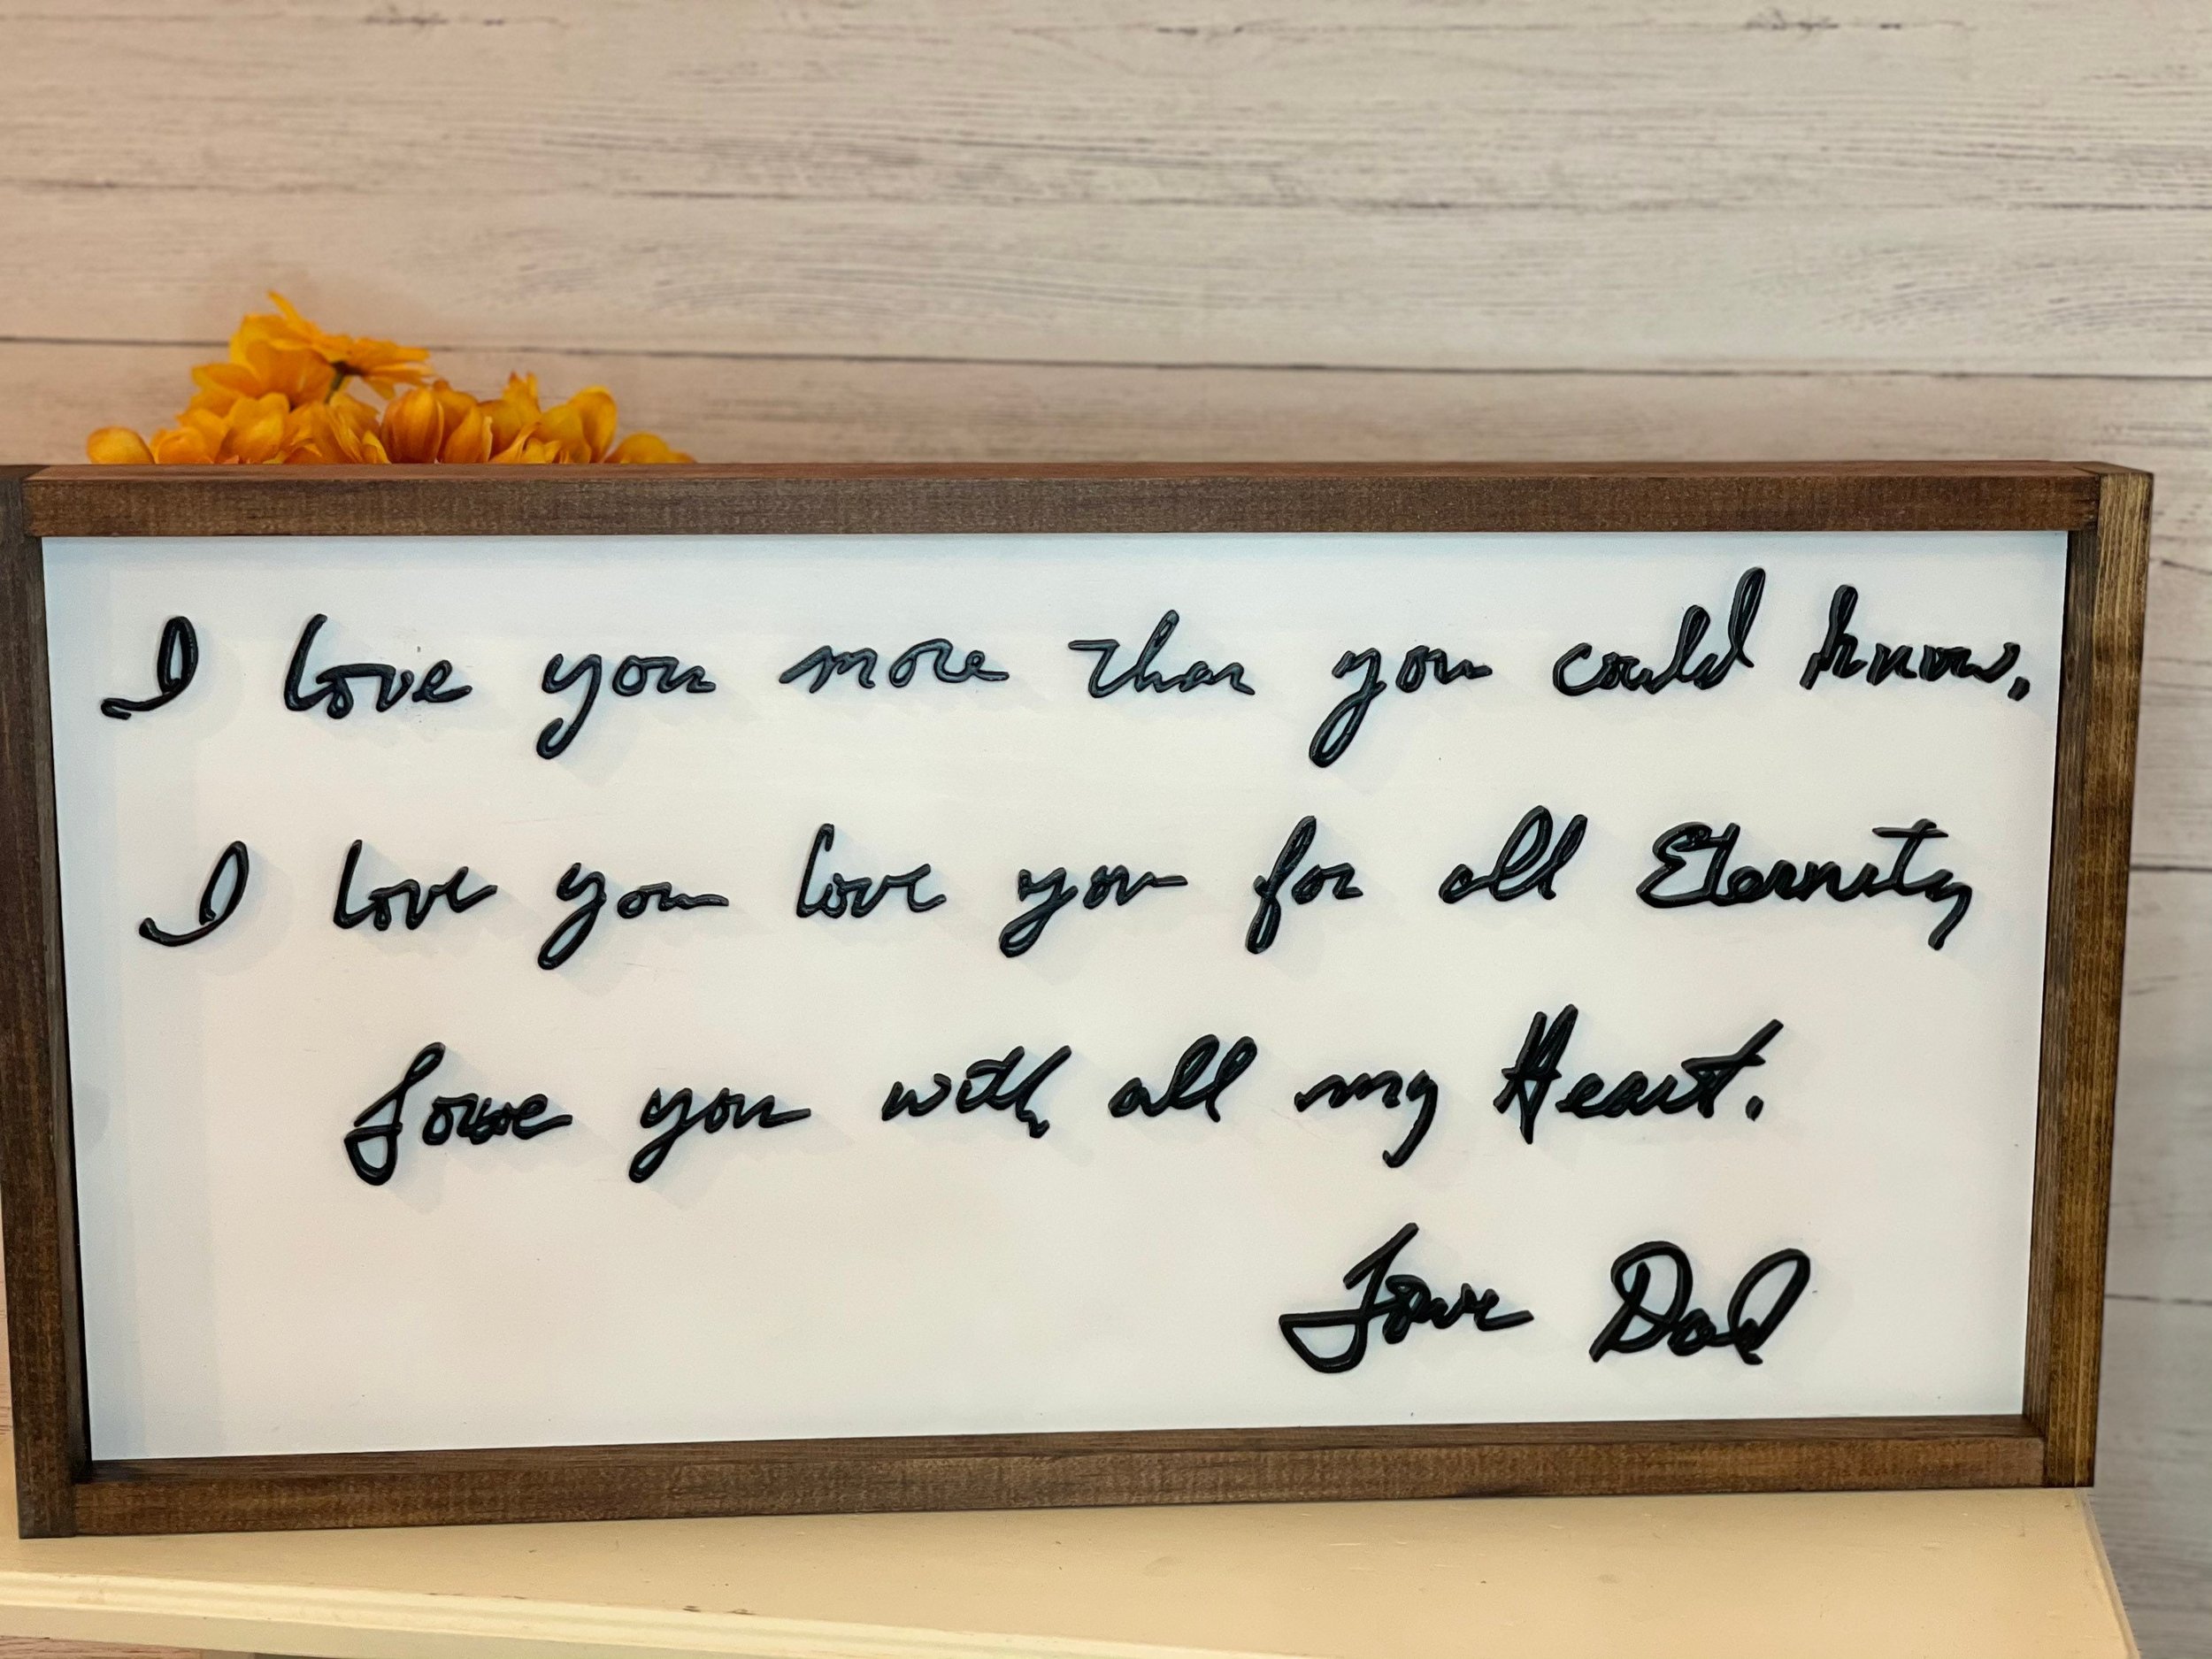 I love you more than you could know.
I love you love you for all Eternity
Love you with all my Heart.
Love Dad